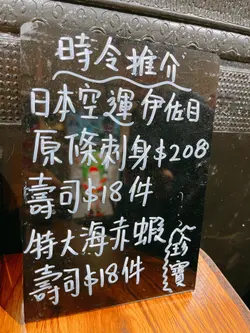 時令推介
日本空運伊佐目
原條刺身$208
壽司$18件
特大海赤蝦
壽司$18件